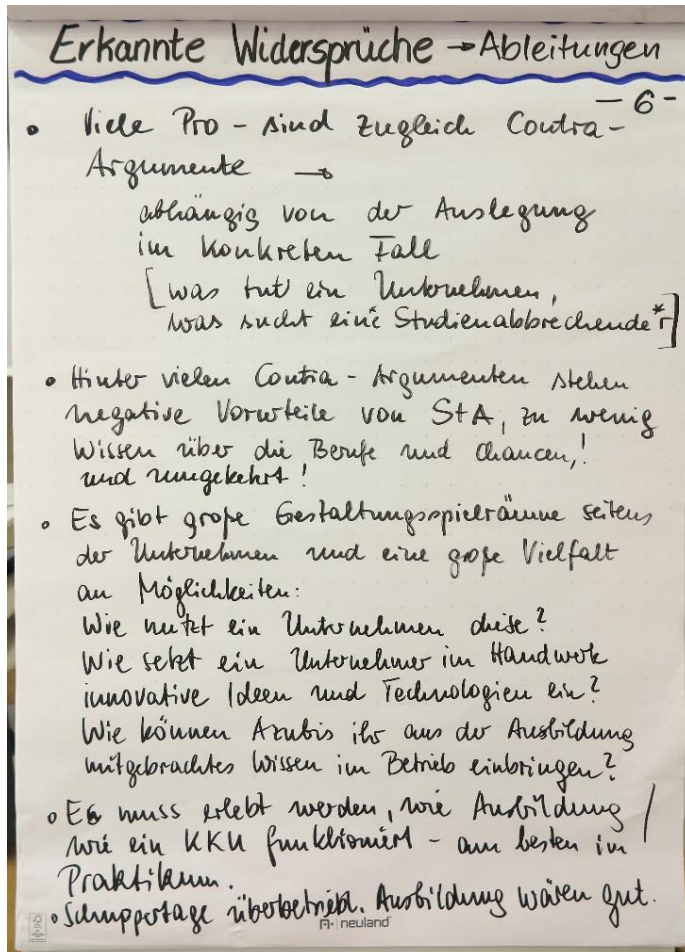 Erkannte Widersprüche → Ableitungen
- 6 -
• Viele Pro - sind zugleich Contra-
Argumente →
abhängig von der Auslegung
im konkreten Fall
[was tut ein Unternehmen,
was sucht eine Studienabbrechende*r]
• Hinter vielen Contra - Argumenten stehen
negative Vorurteile von StA, zu wenig
Wissen über die Berufe und Chancen,!
und umgekehrt!
• Es gibt große Gestaltungsspielräume seitens
der Unternehmen und eine große Vielfalt
an Möglichkeiten:
Wie nutzt ein Unternehmen diese?
Wie setzt ein Unternehmer im Handwerk
innovative Ideen und Technologien ein?
Wie können Azubis ihr aus der Ausbildung
mitgebrachtes Wissen im Betrieb einbringen?
• Es muss erlebt werden, wie Ausbildung /
wie ein KKU funktioniert - am besten im
Praktikum.
• Schnuppertage überbetriebl. Ausbildung wären gut.
neuland